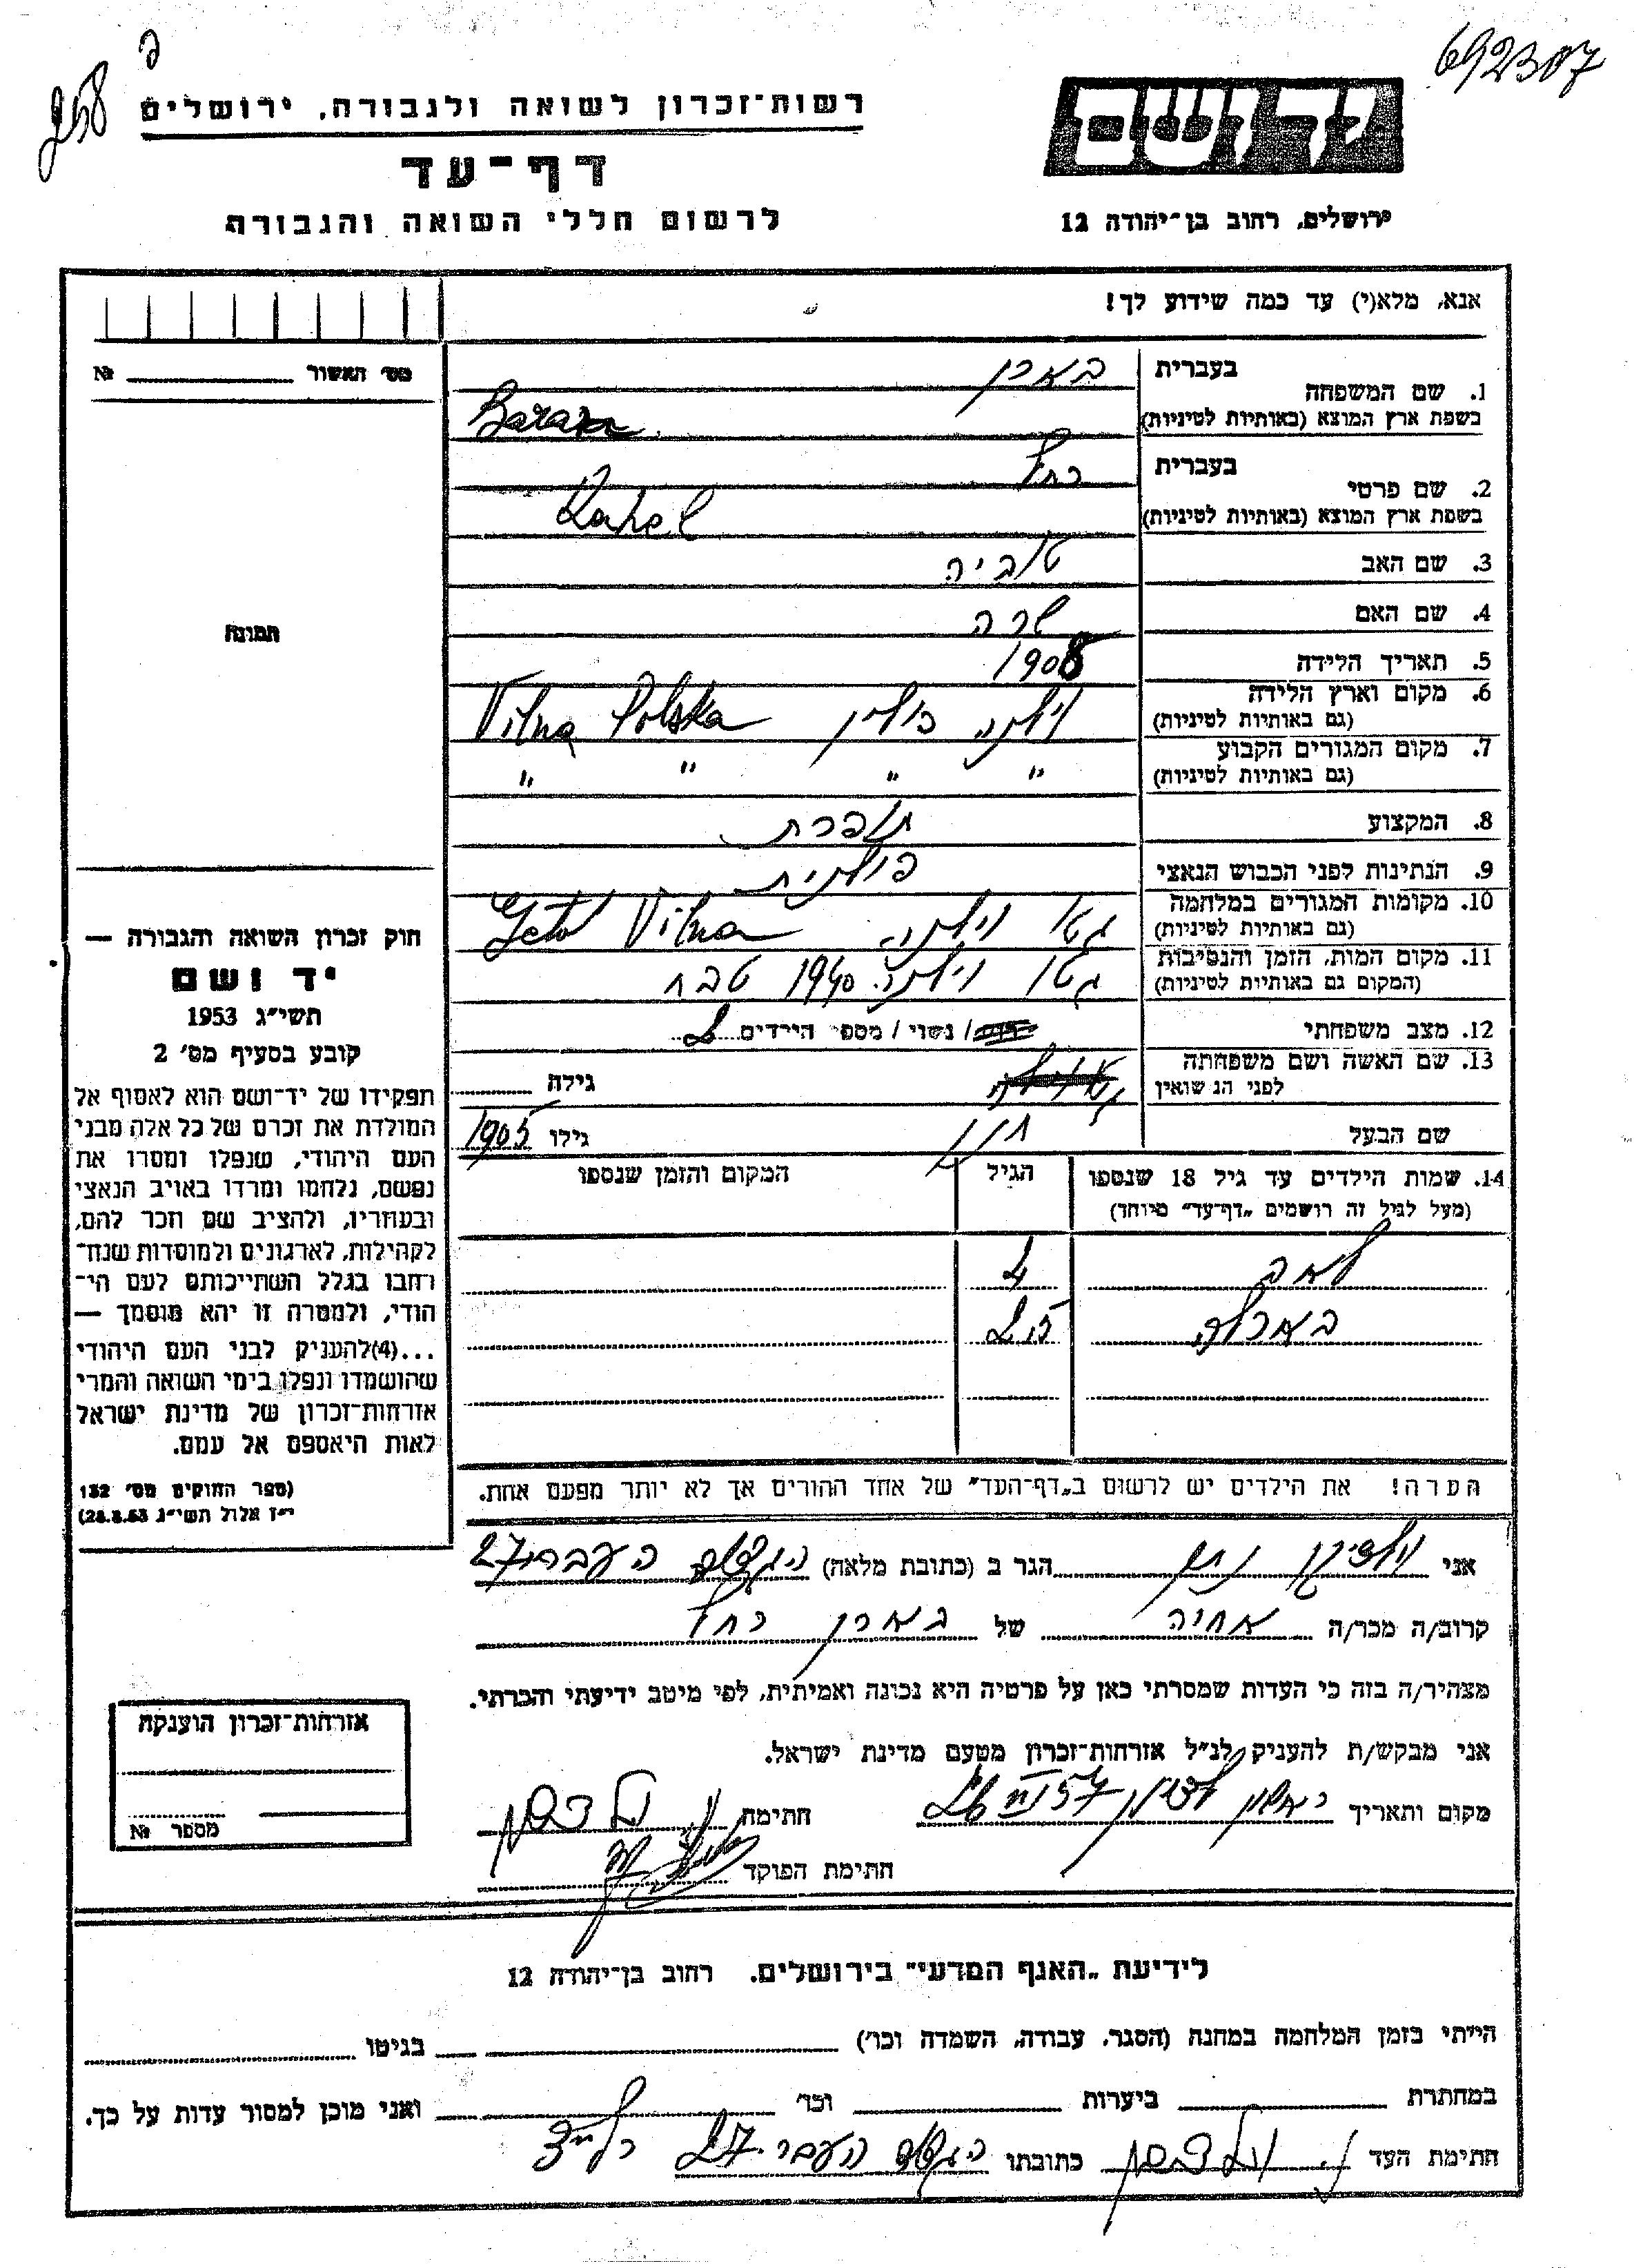 692307
258
רשות־זכרון לשואה ולגבורה, ירושלים
דף־עד
לרשום חללי השואה והגבורה
יד ושם
ירושלים, רחוב בן־יהודה 12
אנא, מלא(י) עד כמה שידוע לך!
מס׳ האשור № 
1. שם המשפחה
בעברית
בארן
בשפת ארץ המוצא (באותיות לטיניות)
Baran
2. שם פרטי
בעברית
רחל
בשפת ארץ המוצא (באותיות לטיניות)
Rahel
3. שם האב טוביה
4. שם האם שרה
5. תאריך הלידה 1908
6. מקום וארץ הלידה
(גם באותיות לטיניות)
וילנה פולין Vilna Polska
7. מקום המגורים הקבוע
(גם באותיות לטיניות)
" " " "
8. המקצוע תופרת
9. הנתינות לפני הכבוש הנאצי פולנית
10. מקומות המגורים במלחמה
(גם באותיות לטיניות)
גטו וילנה Geto Vilna
11. מקום המות, הזמן והנסיבות
(המקום גם באותיות לטיניות)
גטו וילנה 1940 טבח
12. מצב משפחתי
/ נשוי / מספר הילדים 2
13. שם האשה ושם משפחתה
לפני הנשואין
גילה
שם הבעל
גילו 1905
14. שמות הילדים עד גיל 18 שנספו
(מעל לגיל זה רושמים „דף־עד״ מיוחד)
הגיל
המקום והזמן שנספו
זאב 4
2.5
הערה! את הילדים יש לרשום ב„דף־העד״ של אחד ההורים אך לא יותר מפעם אחת.
תמונה
חוק זכרון השואה והגבורה —
יד ושם
תשי״ג 1953
קובע בסעיף מס׳ 2
תפקידו של יד־ושם הוא לאסוף אל
המולדת את זכרם של כל אלה מבני
העם היהודי, שנפלו ומסרו את
נפשם, נלחמו ומרדו באויב הנאצי
ובעוזריו, ולהציב שם וזכר להם,
לקהילות, לארגונים ולמוסדות שנח־
רבו בגלל השתייכותם לעם הי־
הודי, ולמטרה זו יהא מוסמך —
...(4)להעניק לבני העם היהודי
שהושמדו ונפלו בימי השואה והמרי
אזרחות־זכרון של מדינת ישראל
לאות היאספם אל עמם.
(ספר החוקים מס׳ 132
י״ז אלול תשי״ג 28.8.53)
אני נתן הגר ב (כתובת מלאה) העברי 27
קרוב/ה מכר/ה אחיה של בארן רחל
מצהיר/ה בזה כי העדות שמסרתי כאן על פרטיה היא נכונה ואמיתית, לפי מיטב ידיעתי והכרתי.
אני מבקש/ת להעניק לנ״ל אזרחות־זכרון מטעם מדינת ישראל.
מקום ותאריך ראשון לציון חתימה
חתימת הפוקד
אזרחות־זכרון הוענקה
מספר №
לידיעת „האגף המדעי״ בירושלים. רחוב בן־יהודה 12
הייתי בזמן המלחמה במחנה (הסגר, עבודה, השמדה וכו׳) בגיטו
במחתרת ביערות וכו׳ ואני מוכן למסור עדות על כך.
חתימת העד כתובתו העברי 27 ראשל״צ